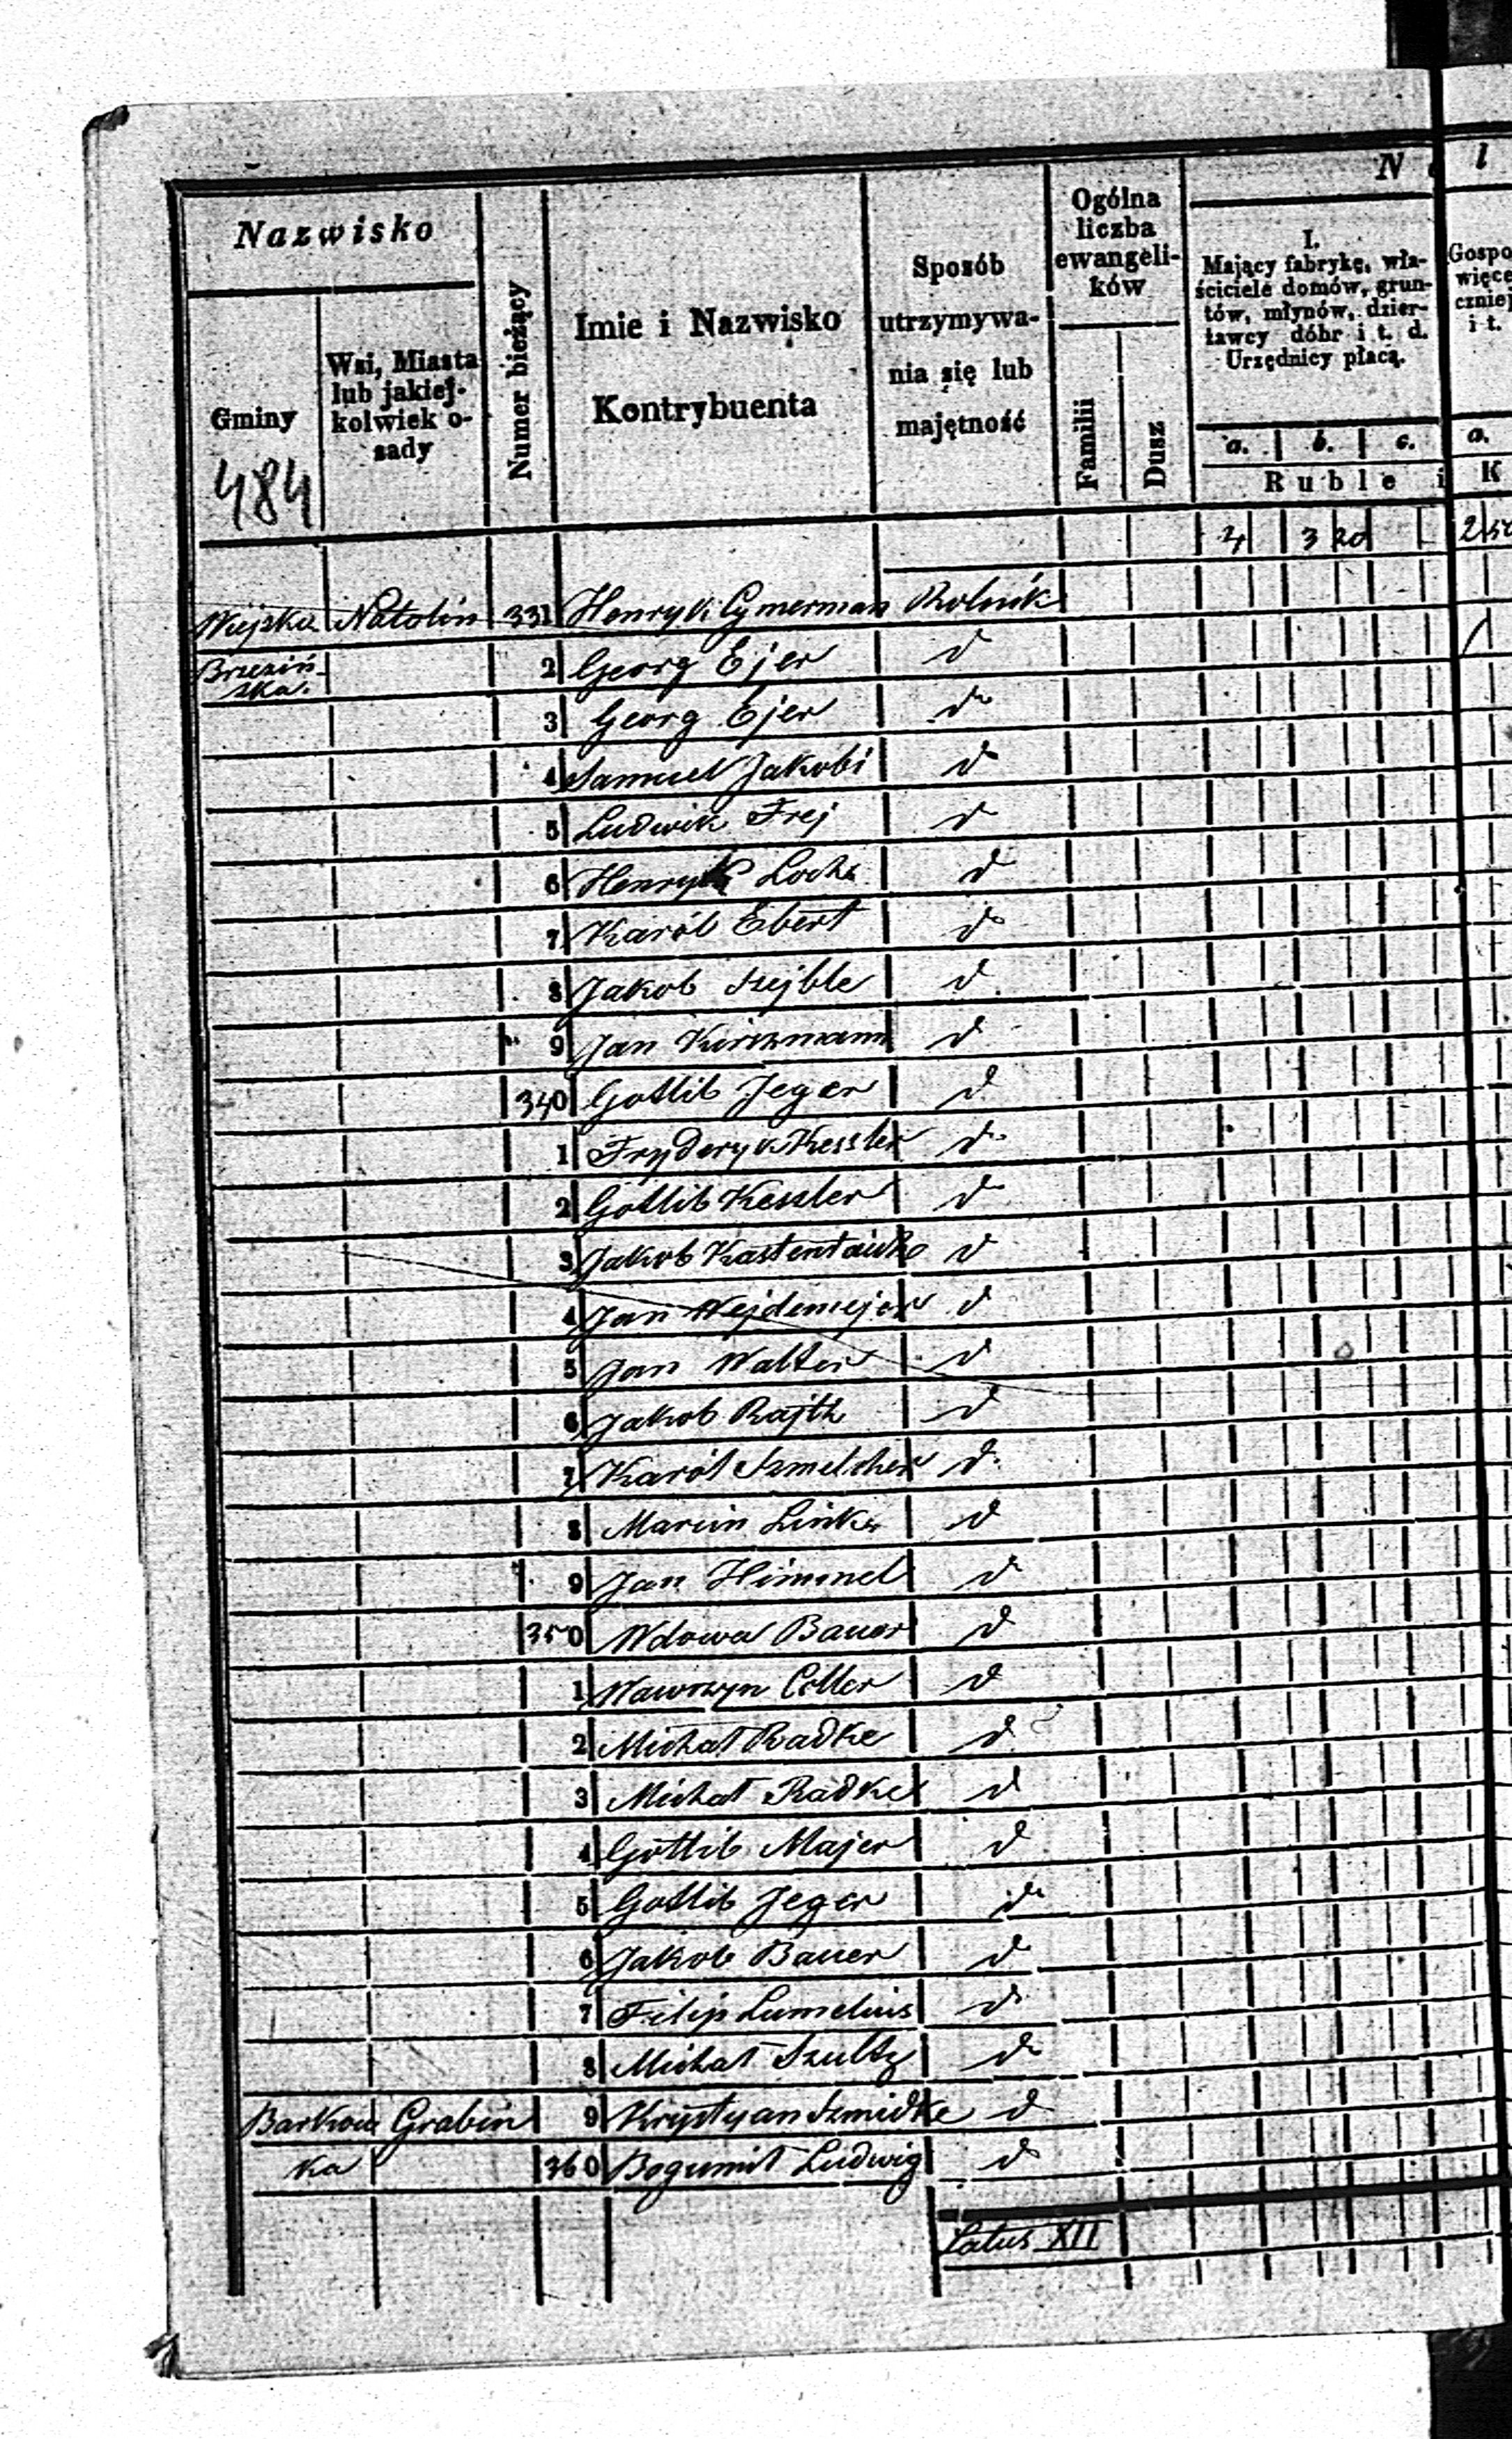 Nazwisko
Gminy
Wsi, Miasta
lub jakiej-
kolwiek o-
sady
Numer bieżący
Imie i Nazwisko
Kontrybuenta
Sposób
utrzymywa-
nia się lub
majętność
Ogólna
liczba
ewangeli-
ków
Familii
Dusz
N
I.
Mający fabrykę, wła-
ściciele domów, grun-
tów, młynów, dzier-
żawcy dóbr i t. d.
Urzędnicy płacą.
a. b. c.
Ruble i
l
Gospo
więce
cznie
i t.
a.
K
484
3 20
Wiejska Natolin 331 Henryk Cymerman Rolnik
Brzeziń- 2 Georg Ejer d
ska.
3 Georg Ejer d
4 Samuel Jakobi d
5 Ludwik Frej d
6 Henryk Lochs d
7 Karól Ebert d
8 Jakob Szejble d
9 Jan Kirszmann d
340 Gotlib Jeger d
1 Fryderyk Kessler d
2 Gotlib Kessler d
3 Jakob d
4 Jan Wejdemejer d
5 Jan Walter d
6 Jakob Rajth d
7 Karól Szmelcher d
8 Marcin Links d
9 Jan Himmel d
350 Wdowa Bauer d
1 Wawrzyn d
2 Michał Radke d
3 Michał Radke d
4 Gottlib Majer d
5 Gotlib Jeger d
6 Jakob Bauer d
7 Filip Lumelius d
8 Michał Szultz d
Barkow Grabin 9 Krystyan Szmidke d
ka 360 Bogumił Ludwig d
Latus XII